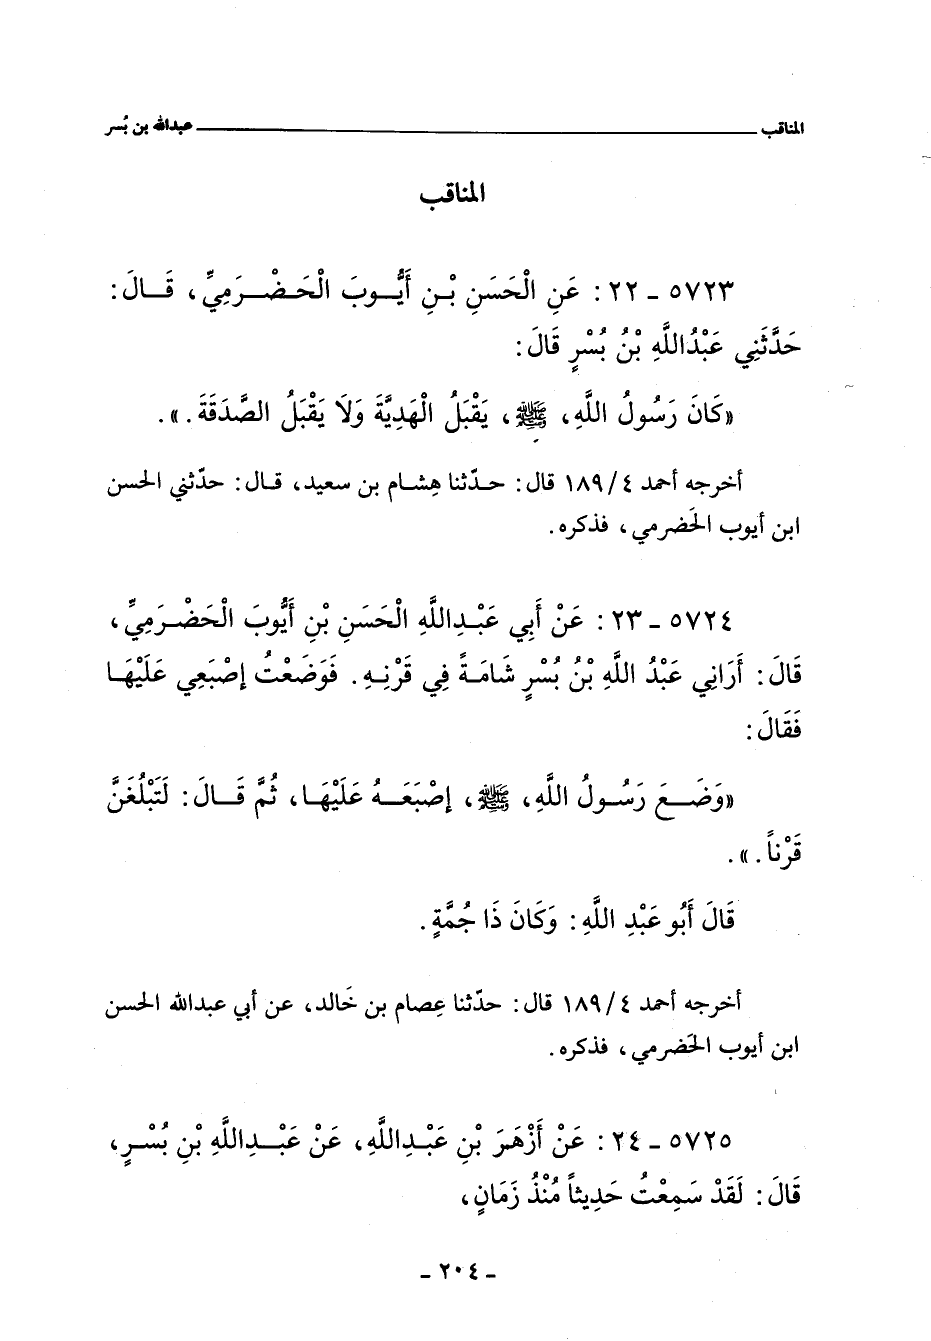 المناقب عبدالله بن بُسر
المناقب
٥٧٢٣ ـ ٢٢ : عَنِ الْحَسَنِ بْنِ أَيُّوبَ الْحَضْرَمِيِّ، قَالَ :
حَدَّثَنِي عَبْدُاللَّهِ بْنُ بُسْرٍ قَالَ :
«كَانَ رَسُولُ اللَّهِ، ﷺ، يَقْبَلُ الْهَدِيَّةَ وَلَا يَقْبَلُ الصَّدَقَةَ . ».
أخرجه أحمد ٤/ ١٨٩ قال : حدّثنا هِشام بن سعيد، قال : حدّثني الحسن
ابن أيوب الحَضرمي، فذكره.
٥٧٢٤ ـ ٢٣ : عَنْ أَبِي عَبْدِاللَّهِ الْحَسَنِ بْنِ أَيُّوبَ الْحَضْرَمِيِّ،
قَالَ : أَرَانِي عَبْدُ اللَّهِ بْنُ بُسْرٍ شَامَةً فِي قَرْنِهِ . فَوَضَعْتُ إِصْبَعِي عَلَيْهَا
فَقَالَ :
«وَضَعَ رَسُولُ اللَّهِ، ﷺ، إِصْبَعَهُ عَلَيْهَا، ثُمَّ قَالَ : لَتَبْلُغَنَّ
قَرْناً . ».
قَالَ أَبُو عَبْدِ اللَّهِ : وَكَانَ ذَا جُمَّةٍ.
أخرجه أحمد ٤/ ١٨٩ قال : حدّثنا عِصام بن خَالد، عن أبي عبدالله الحسن
ابن أيوب الحَضرمي، فذكره.
٥٧٢٥ ـ ٢٤ : عَنْ أَزْهَرَ بْنِ عَبْدِاللَّهِ، عَنْ عَبْدِاللَّهِ بْنِ بُسْرٍ،
قَالَ : لَقَدْ سَمِعْتُ حَدِيثاً مُنْذُ زَمَانٍ،
ـ ٢٠٤ ـ